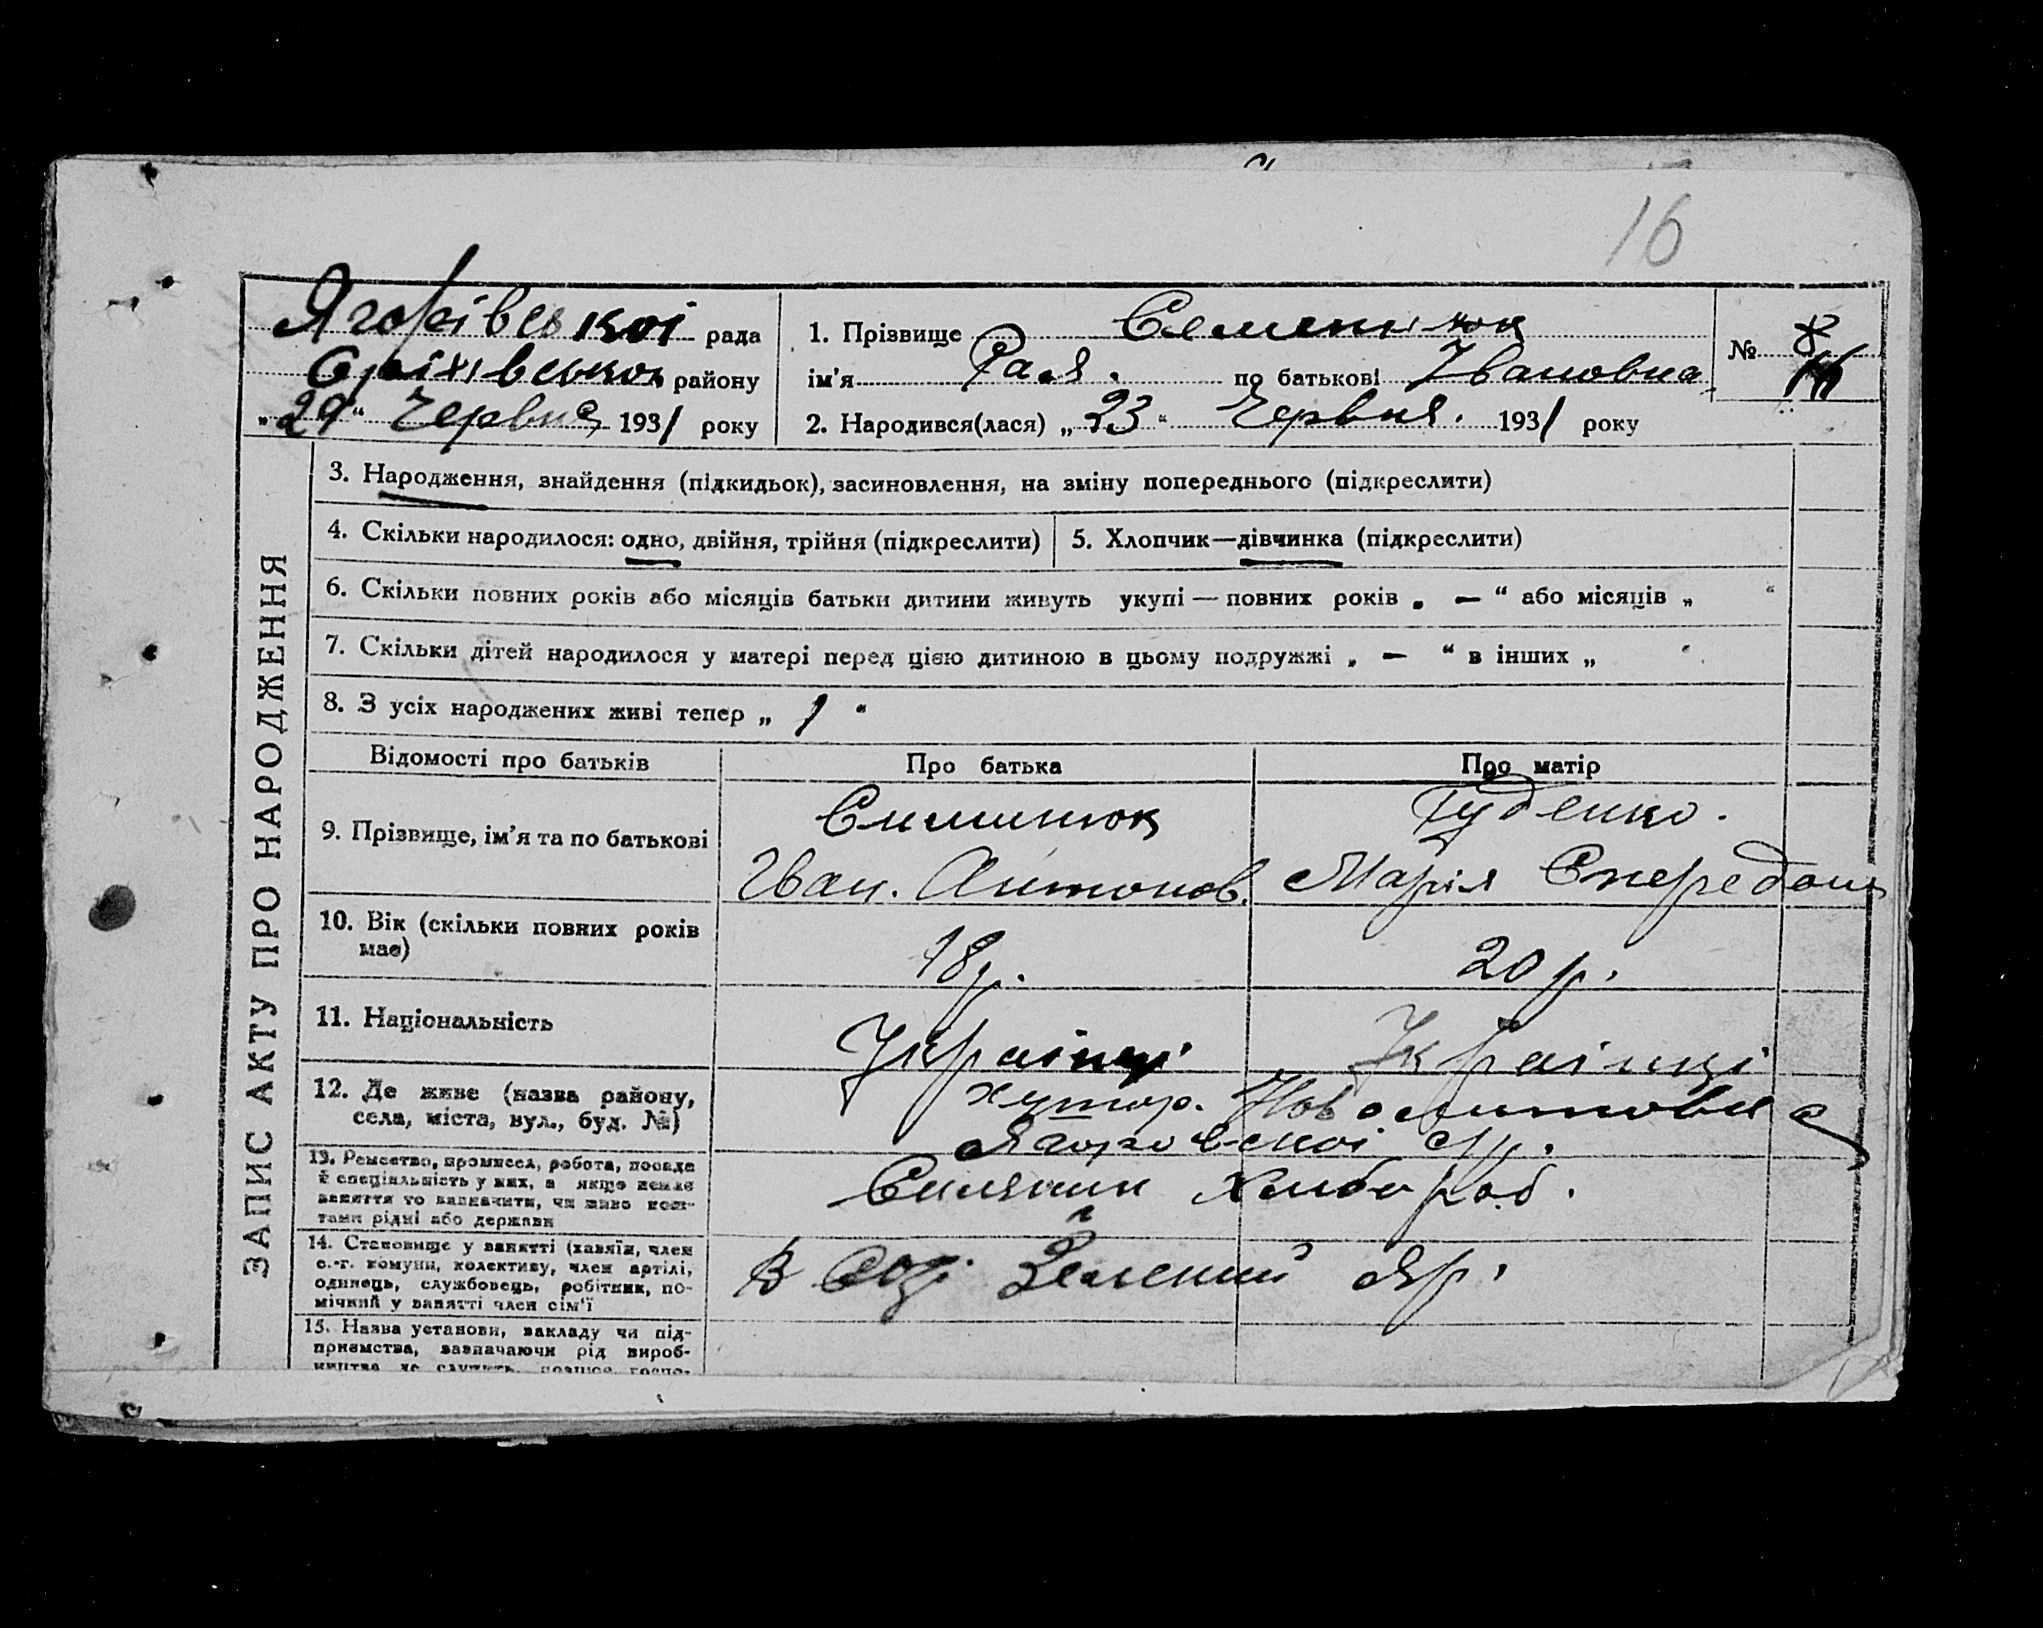 16
Ягорівської рада
Оріхівського району
„29“ Червня 1931 року
1. Прізвище Семенюк
ім’я Рая. по батькові Івановна
2. Народився(лася) „23“ Червня. 1931 року
№ 8
ЗАПИС АКТУ ПРО НАРОДЖЕННЯ
3. Народження, знайдення (підкидьок), засиновлення, на зміну попереднього (підкреслити)
4. Скільки народилося: одно, двійня, трійня (підкреслити)
5. Хлопчик—дівчинка (підкреслити)
6. Скільки повних років або місяців батьки дитини живуть укупі — повних років „ — “ або місяців „ “
7. Скільки дітей народилося у матері перед цією дитиною в цьому подружжі „ — “ в інших „ “
8. З усіх народжених живі тепер „ 1 “
Відомості про батьків
Про батька
Про матір
9. Прізвище, ім’я та по батькові
Симинюк
Іван. Антонов.
Гуденко.
Марія Спередон
10. Вік (скільки повних років
має)
18 р.
20 р.
11. Національність
Украінці
Украінці
12. Де живе (назва району,
села, міста, вул., буд. №)
хутор.
13. Ремество, промисел, робота, посада
й спеціальність у них, а якщо немає
заняття то зазначити, чи живо кош-
тами рідні або держави
Хлибороб.
14. Становище у занятті (хазяїн, член
с.-г. комуни, колективу, член артілі,
одинець, службовець, робітник, по-
мічний у занятті член сім’ї
В Созі Зелений Яр.
15. Назва установи, закладу чи під-
приємства, зазначаючи рід вироб-